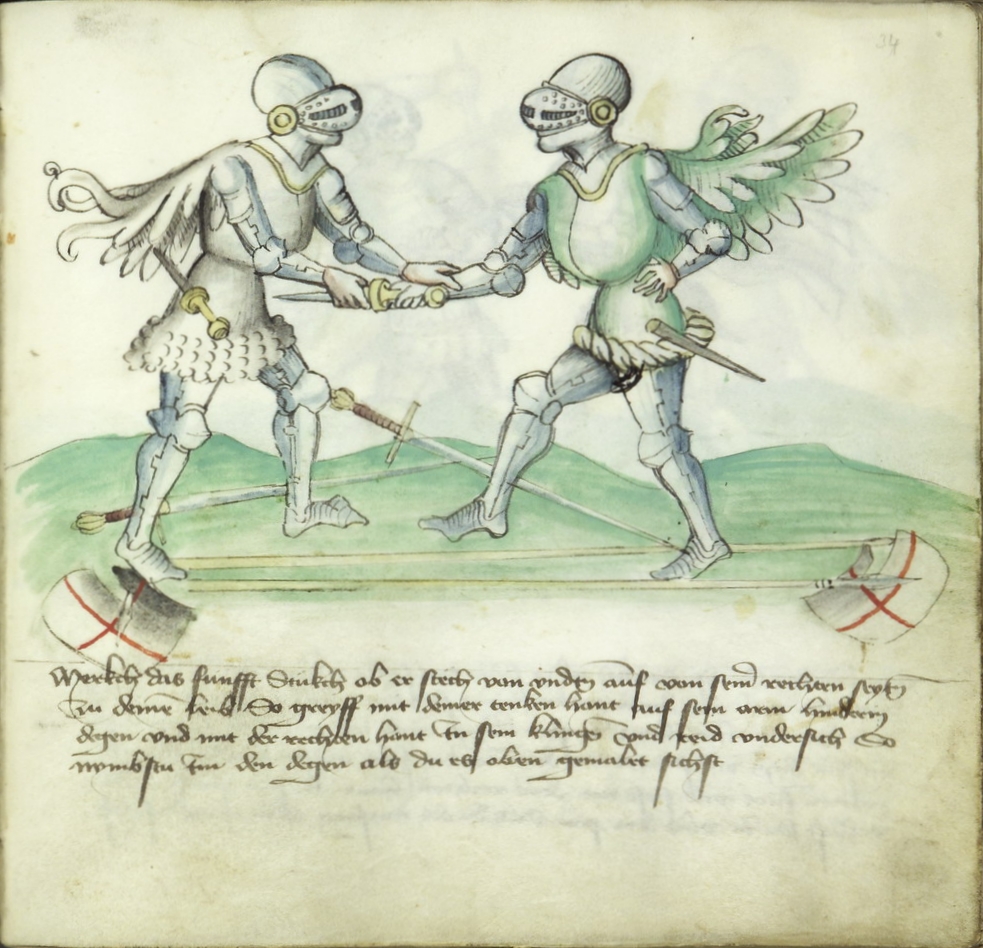 34
Merkch das funfft Stukch ob er stech von vndtn auf von seinē rechten seytn
Zu deinē leib So greyff mit deiner tenken hant auf sein arm hinderm
degen vnd mit der rechten hant In sein klingen vnd reid vndersich So
nymbstu Im den degen als du es oben gemalet sichst